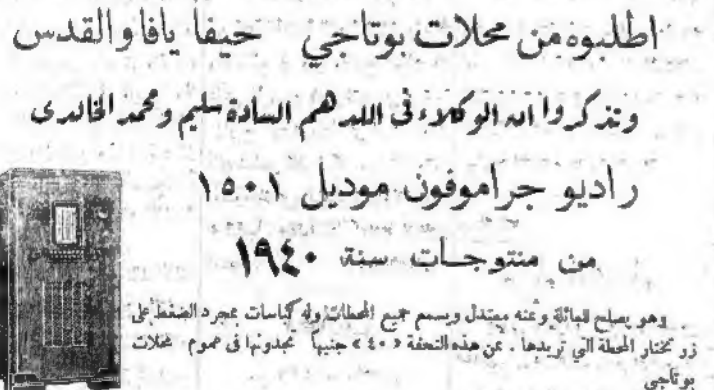 اطلبوه من محلات بوتاجي حيفا يافا والقدس
وتذكروا ان الوكلاء في اللد هم السادة سليم ومحمد الخالدى
راديو جراموفون موديل ١٥٠١
من منتوجات سنة ١٩٤٠
وهو يصلح للعائلة وثمنه معتدل ويسمع جميع المحطات وله كباسات بمجرد الضغط على
زر تختار المحطة التي تريدها . ثمن هذه التحفة « ٤٠ » جنيها تجدونها فى عموم محلات
بوتاجي